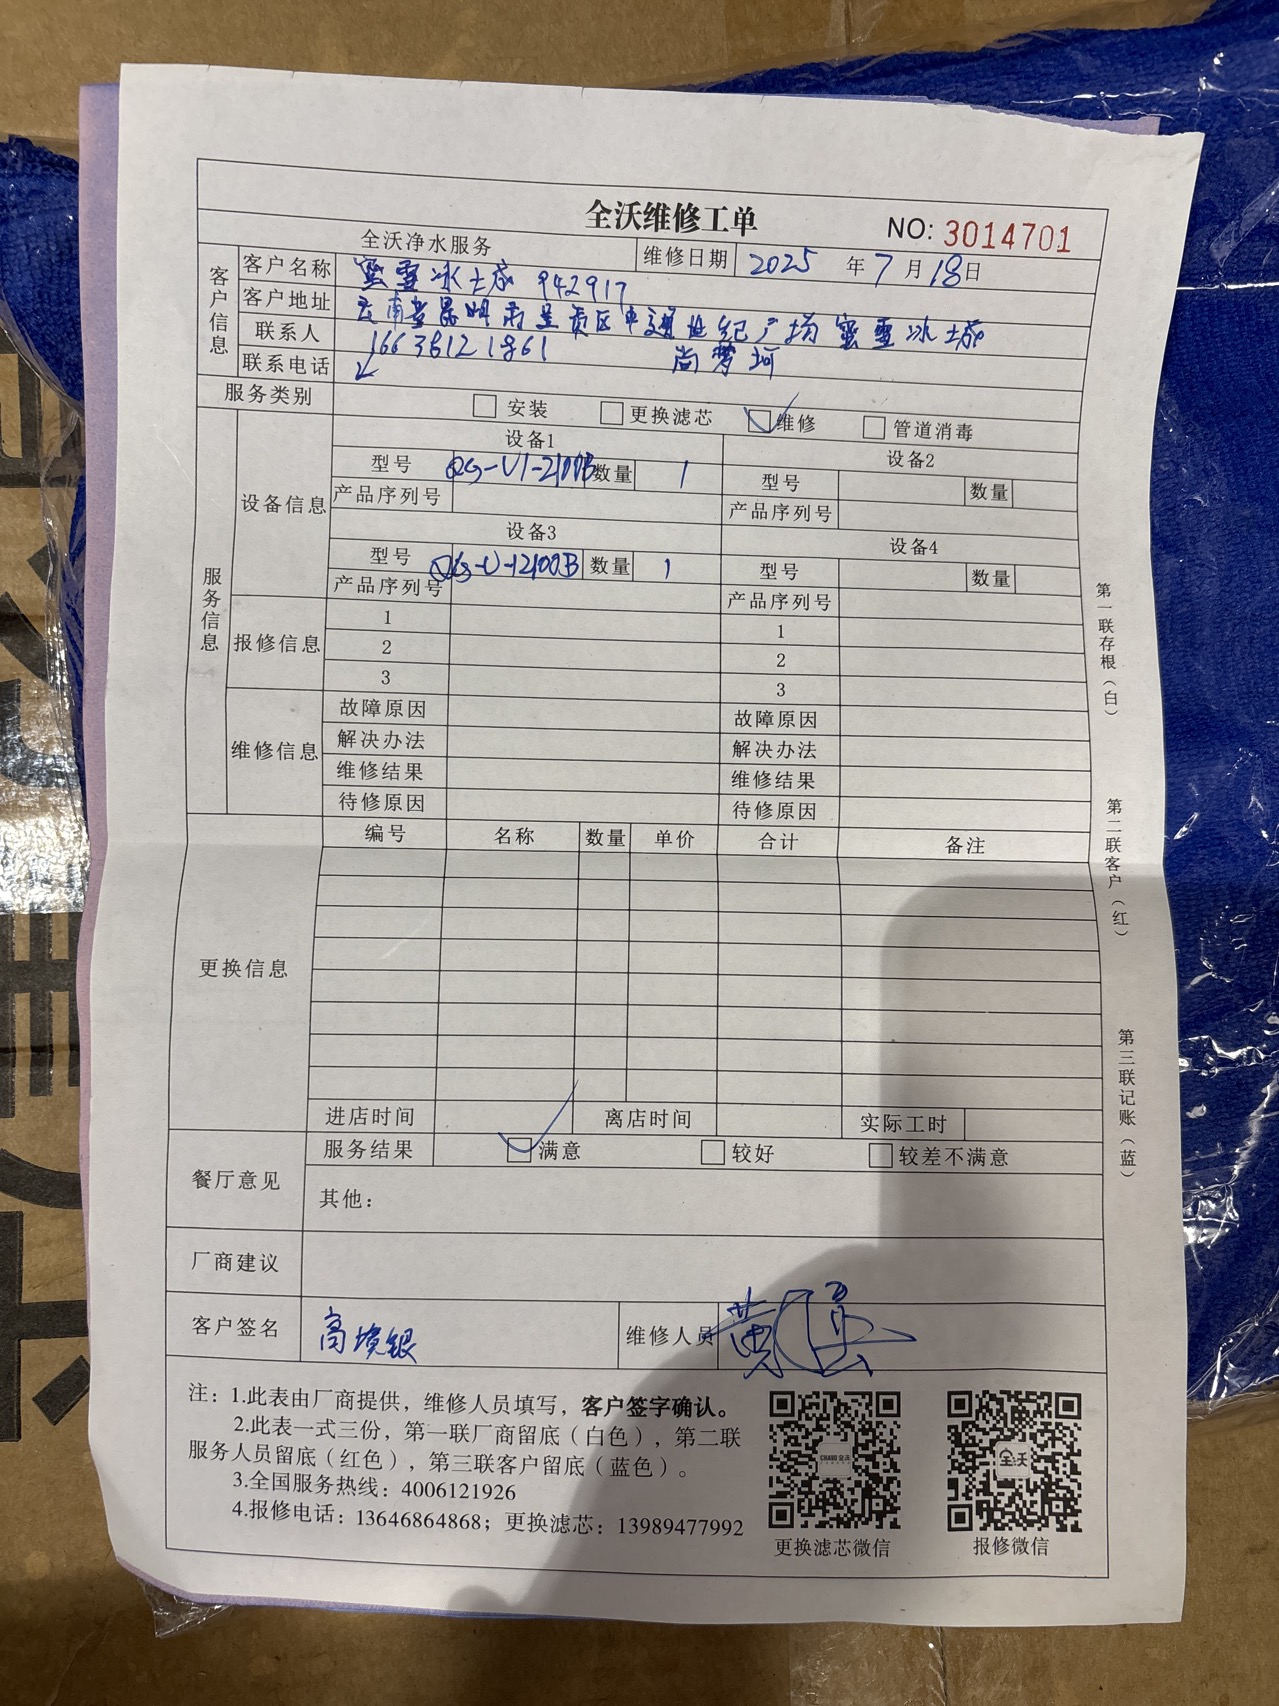 全沃维修工单
NO: 3014701
全沃净水服务
维修日期 2025 年 7 月 18 日
客户信息
客户名称 蜜雪冰城 942917
客户地址 云南省昆明市呈贡区 世纪广场 蜜雪冰城
联系人 16638121861 尚梦珂
联系电话
服务类别 安装 更换滤芯 维修 管道消毒
服务信息
设备信息
设备1 设备2
型号 QG-U1-2100B 数量 1 型号 数量
产品序列号 产品序列号
设备3 设备4
型号 QG-U-12100B 数量 1 型号 数量
产品序列号 产品序列号
报修信息
1 1
2 2
3 3
维修信息
故障原因 故障原因
解决办法 解决办法
维修结果 维修结果
待修原因 待修原因
更换信息
编号 名称 数量 单价 合计 备注
进店时间 离店时间 实际工时
餐厅意见
服务结果 满意 较好 较差不满意
其他：
厂商建议
客户签名 高境银 维修人员 黄
注：1.此表由厂商提供，维修人员填写，客户签字确认。
2.此表一式三份，第一联厂商留底（白色），第二联
服务人员留底（红色），第三联客户留底（蓝色）。
3.全国服务热线：4006121926
4.报修电话：13646864868；更换滤芯：13989477992
CHAWO 全沃
全沃
更换滤芯微信 报修微信
第一联存根（白）
第二联客户（红）
第三联记账（蓝）